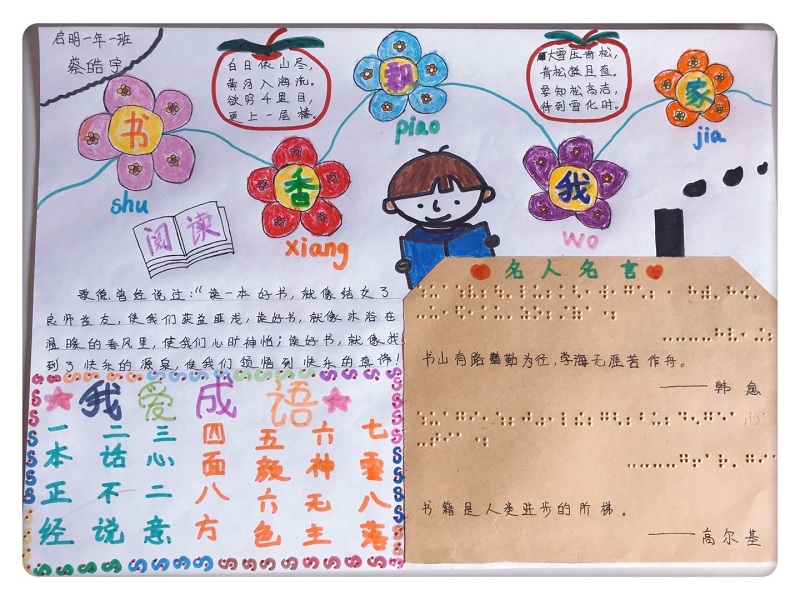 启明一年一班
蔡皓宇
书
shu
香
xiang
和
piao
我
wo
家
jia
白日依山尽,
黄河入海流。
欲穷千里目,
更上一层楼。
大雪压青松,
青松挺且直。
要知松高洁,
待到雪化时。
阅读
歌德曾经说过:“读一本好书,就像结交了
良师益友,使我们获益匪浅,就像沐浴在
温暖的春风里,使我们心旷神怡;读好书,就像找
到了快乐的源泉,使我们领悟到快乐的真谛!
我爱成语
一本正经
二话不说
三心二意
四面八方
五颜六色
六神无主
七零八落
名人名言
书山有路勤为径,学海无涯苦作舟。
——韩愈
书籍是人类进步的阶梯。
——高尔基